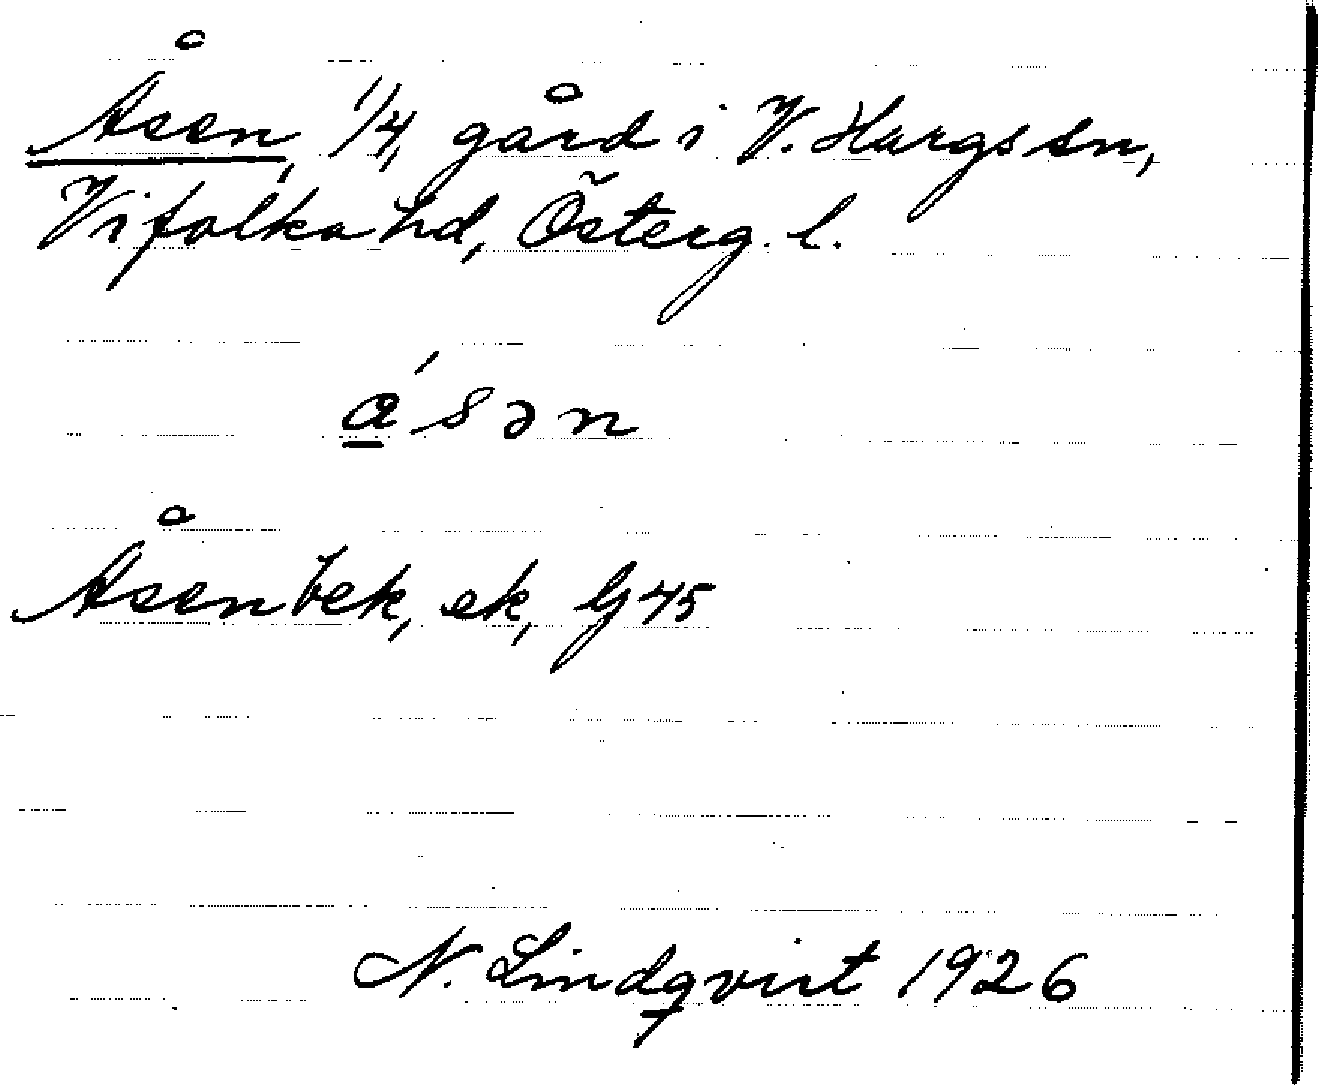 Åsen, 1/4, gård i V. Hargs sn,
Vifolka hd, Österg. l.
á̲sən
Åsen bek, ek, G 45
N. Lindqvist 1926